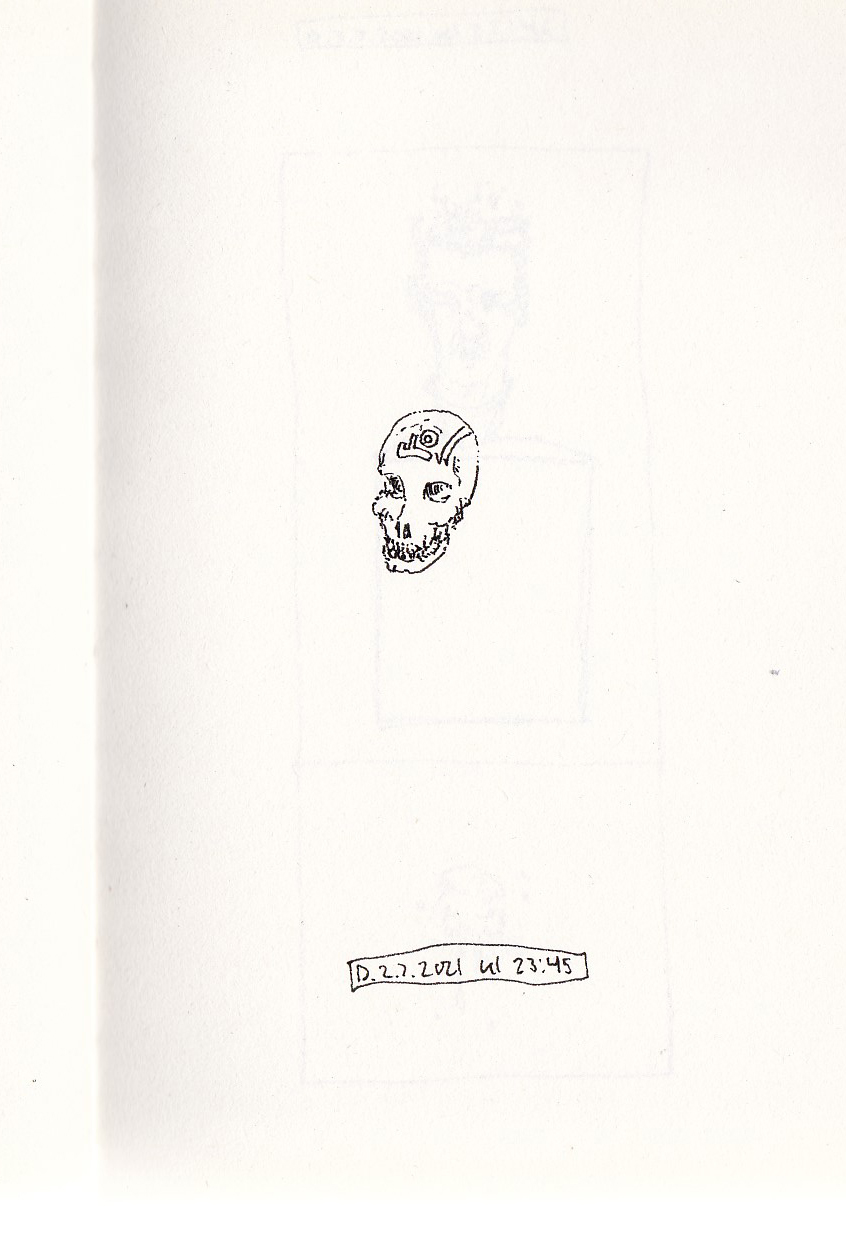 D. 2.7.2021 kl 23:45